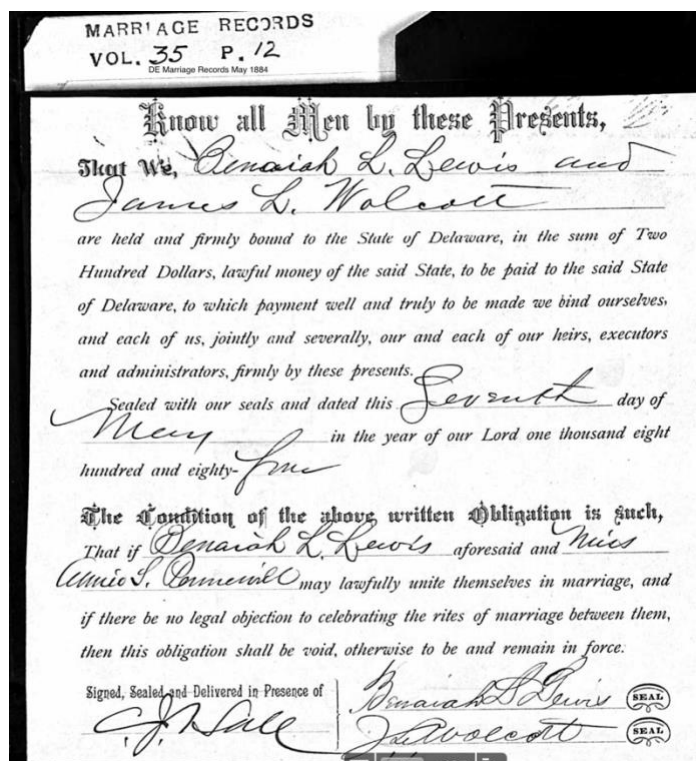 MARRIAGE RECORDS
VOL. 35 P. 12
DE Marriage Records May 1884
Know all Men by these Presents,
That We, Benaiah L. Lewis and
James L. Wolcott
are held and firmly bound to the State of Delaware, in the sum of Two
Hundred Dollars, lawful money of the said State, to be paid to the said State
of Delaware, to which payment well and truly to be made we bind ourselves,
and each of us, jointly and severally, our and each of our heirs, executors
and administrators, firmly by these presents.
Sealed with our seals and dated this Seventh day of
May in the year of our Lord one thousand eight
hundred and eighty-four
The Condition of the above written Obligation is such,
That if Benaiah L. Lewis aforesaid and Miss
Annie S. may lawfully unite themselves in marriage, and
if there be no legal objection to celebrating the rites of marriage between them,
then this obligation shall be void, otherwise to be and remain in force.
Signed, Sealed and Delivered in Presence of
Benaiah L Lewis SEAL
Wolcott SEAL